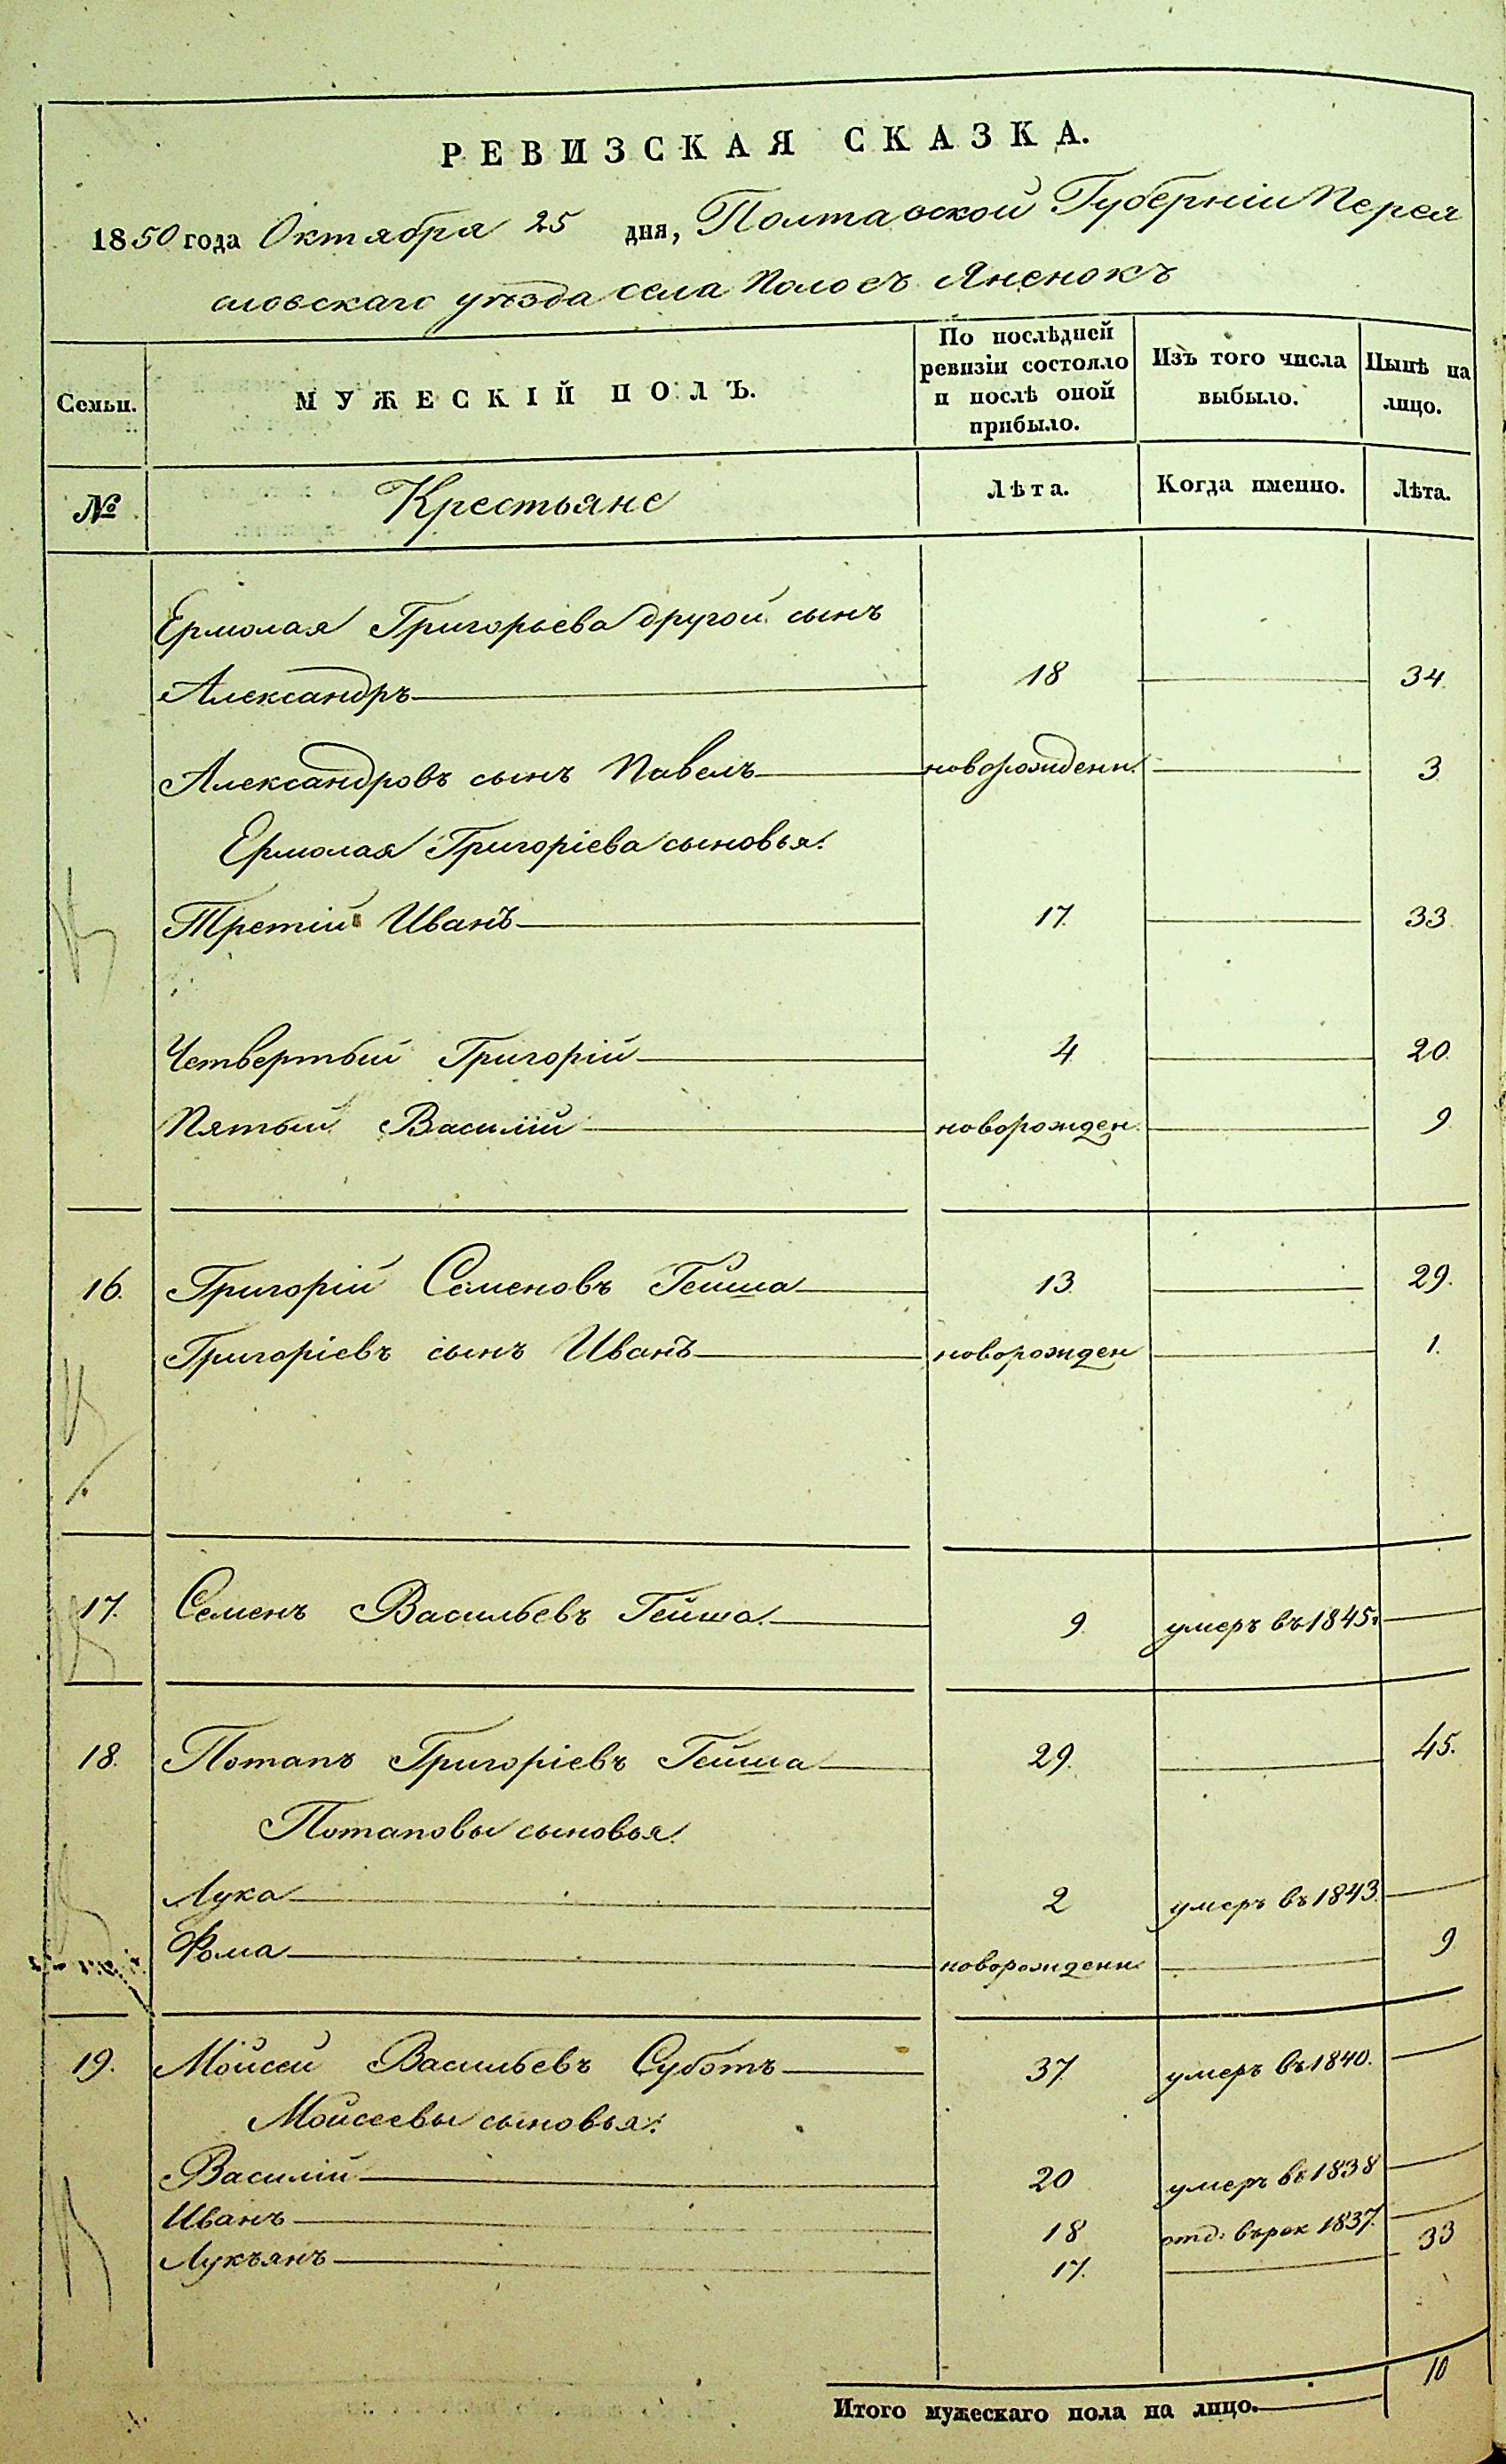 РЕВИЗСКАЯ СКАЗКА.
1850 года Октября 25 дня, Полтавской Губерніи Перея
словскаго уѣзда села Полосъ Яненокъ
Семьи.
МУЖЕСКІЙ ПОЛЪ.
По послѣдней ревизіи состояло и послѣ оной прибыло.
Изъ того числа выбыло.
Нынѣ на лицо.
№ Крестьяне Лѣта. Когда именно. Лѣта.
Ермолая Григорьева другой сынъ
Александръ 18 34
Александровъ сынъ Павелъ новорожденн. 3
Ермолая Григоріева сыновья:
Третій Иванъ 17. 33.
Четвертый Григорій 4 20.
Пятый Василій новорожден. 9
16. Григорій Семеновъ Гейша 13 29.
Григоріевъ сынъ Иванъ новорожден 1.
17. Семенъ Васильевъ Гейша. 9 умеръ въ 1845г
18. Потапъ Григоріевъ Гейша 29. 45.
Потаповы сыновья.
Лука 2 умеръ въ 1843.
Фома новорожденн. 9
19. Мойсей Васильевъ Суботъ 37 умеръ въ 1840.
Мойсеевы сыновья:
Василій 20 умеръ въ 1838
Иванъ 18 отд: върек 1837.
Лукъянъ 17. 33
Итого мужескаго пола на лицо. 10